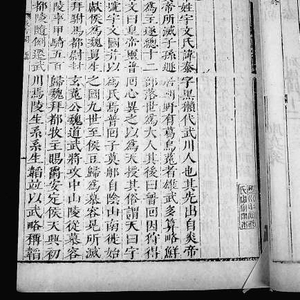 姓宇文氏諱泰字黑獺代武川人也其先出自炎帝
帝所滅子孫遯居朔野有葛烏菟者雄武多算略鮮
為主遂總十二部落世為大人其後曰普回因狩得
文曰皇帝璽普回心異之以為天授其俗謂天曰宇
文國并以為氏焉普回子莫那自陰山南徙始
獻侯為魏舅生之國九世至侯豆歸為慕容晃所滅
拜駙馬都尉封玄菟公魏道武將攻中山陵從慕容
陵率甲騎五百歸魏拜都牧主賜爵安定侯天興初
陵隨例遷武川焉陵生系系生韜並以武略稱韜